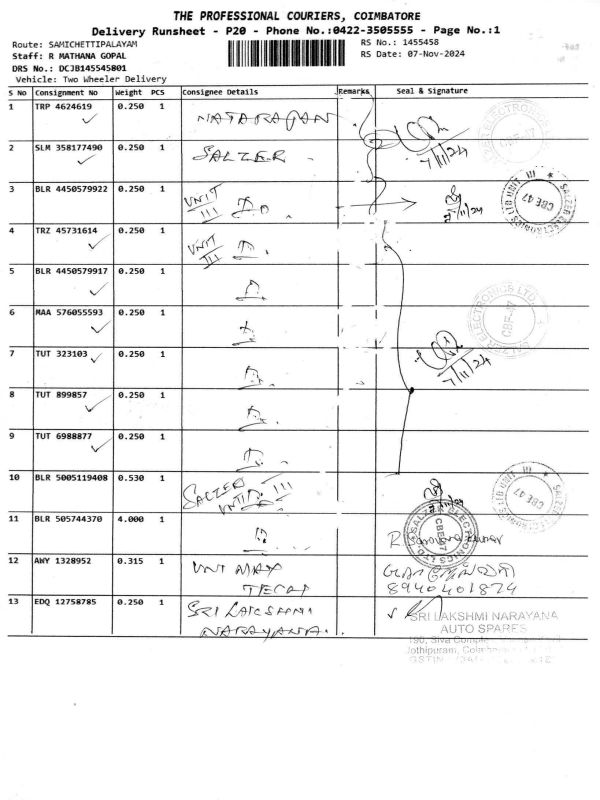 THE PROFESSIONAL COURIERS, COIMBATORE
Delivery Runsheet - P20 - Phone No.:0422-3505555 - Page No.:1
Route: SAMICHETTIPALAYAM
RS No.: 1455458
Staff: R MATHANA GOPAL
RS Date: 07-Nov-2024
DRS No.: DCJB145545801
Vehicle: Two Wheeler Delivery
S No Consignment No Weight PCS Consignee Details Remarks Seal & Signature
1 TRP 4624619 0.250 1 NATARAJAN
7/11/24
2 SLM 358177490 0.250 1 SALZER
3 BLR 4450579922 0.250 1 UNIT III
7/11/24
SALZER ELECTRONICS LTD UNIT III CBE 47
4 TRZ 45731614 0.250 1 UNIT III
5 BLR 4450579917 0.250 1
6 MAA 576055593 0.250 1
SALZER ELECTRONICS LTD. CBE-47
7 TUT 323103 0.250 1
7/11/24
8 TUT 899857 0.250 1
9 TUT 6988877 0.250 1
10 BLR 5005119408 0.530 1 SALZER
UNIT III
11 BLR 505744370 4.000 1
SALZER ELECTRONICS LTD CBE-47
12 AWY 1328952 0.315 1
8940401874
13 EDQ 12758785 0.250 1 SRI LAKSHMI
NARAYANA
SRI LAKSHMI NARAYANA
AUTO SPARES
190, Siva Complex
Jothipuram,
GSTIN